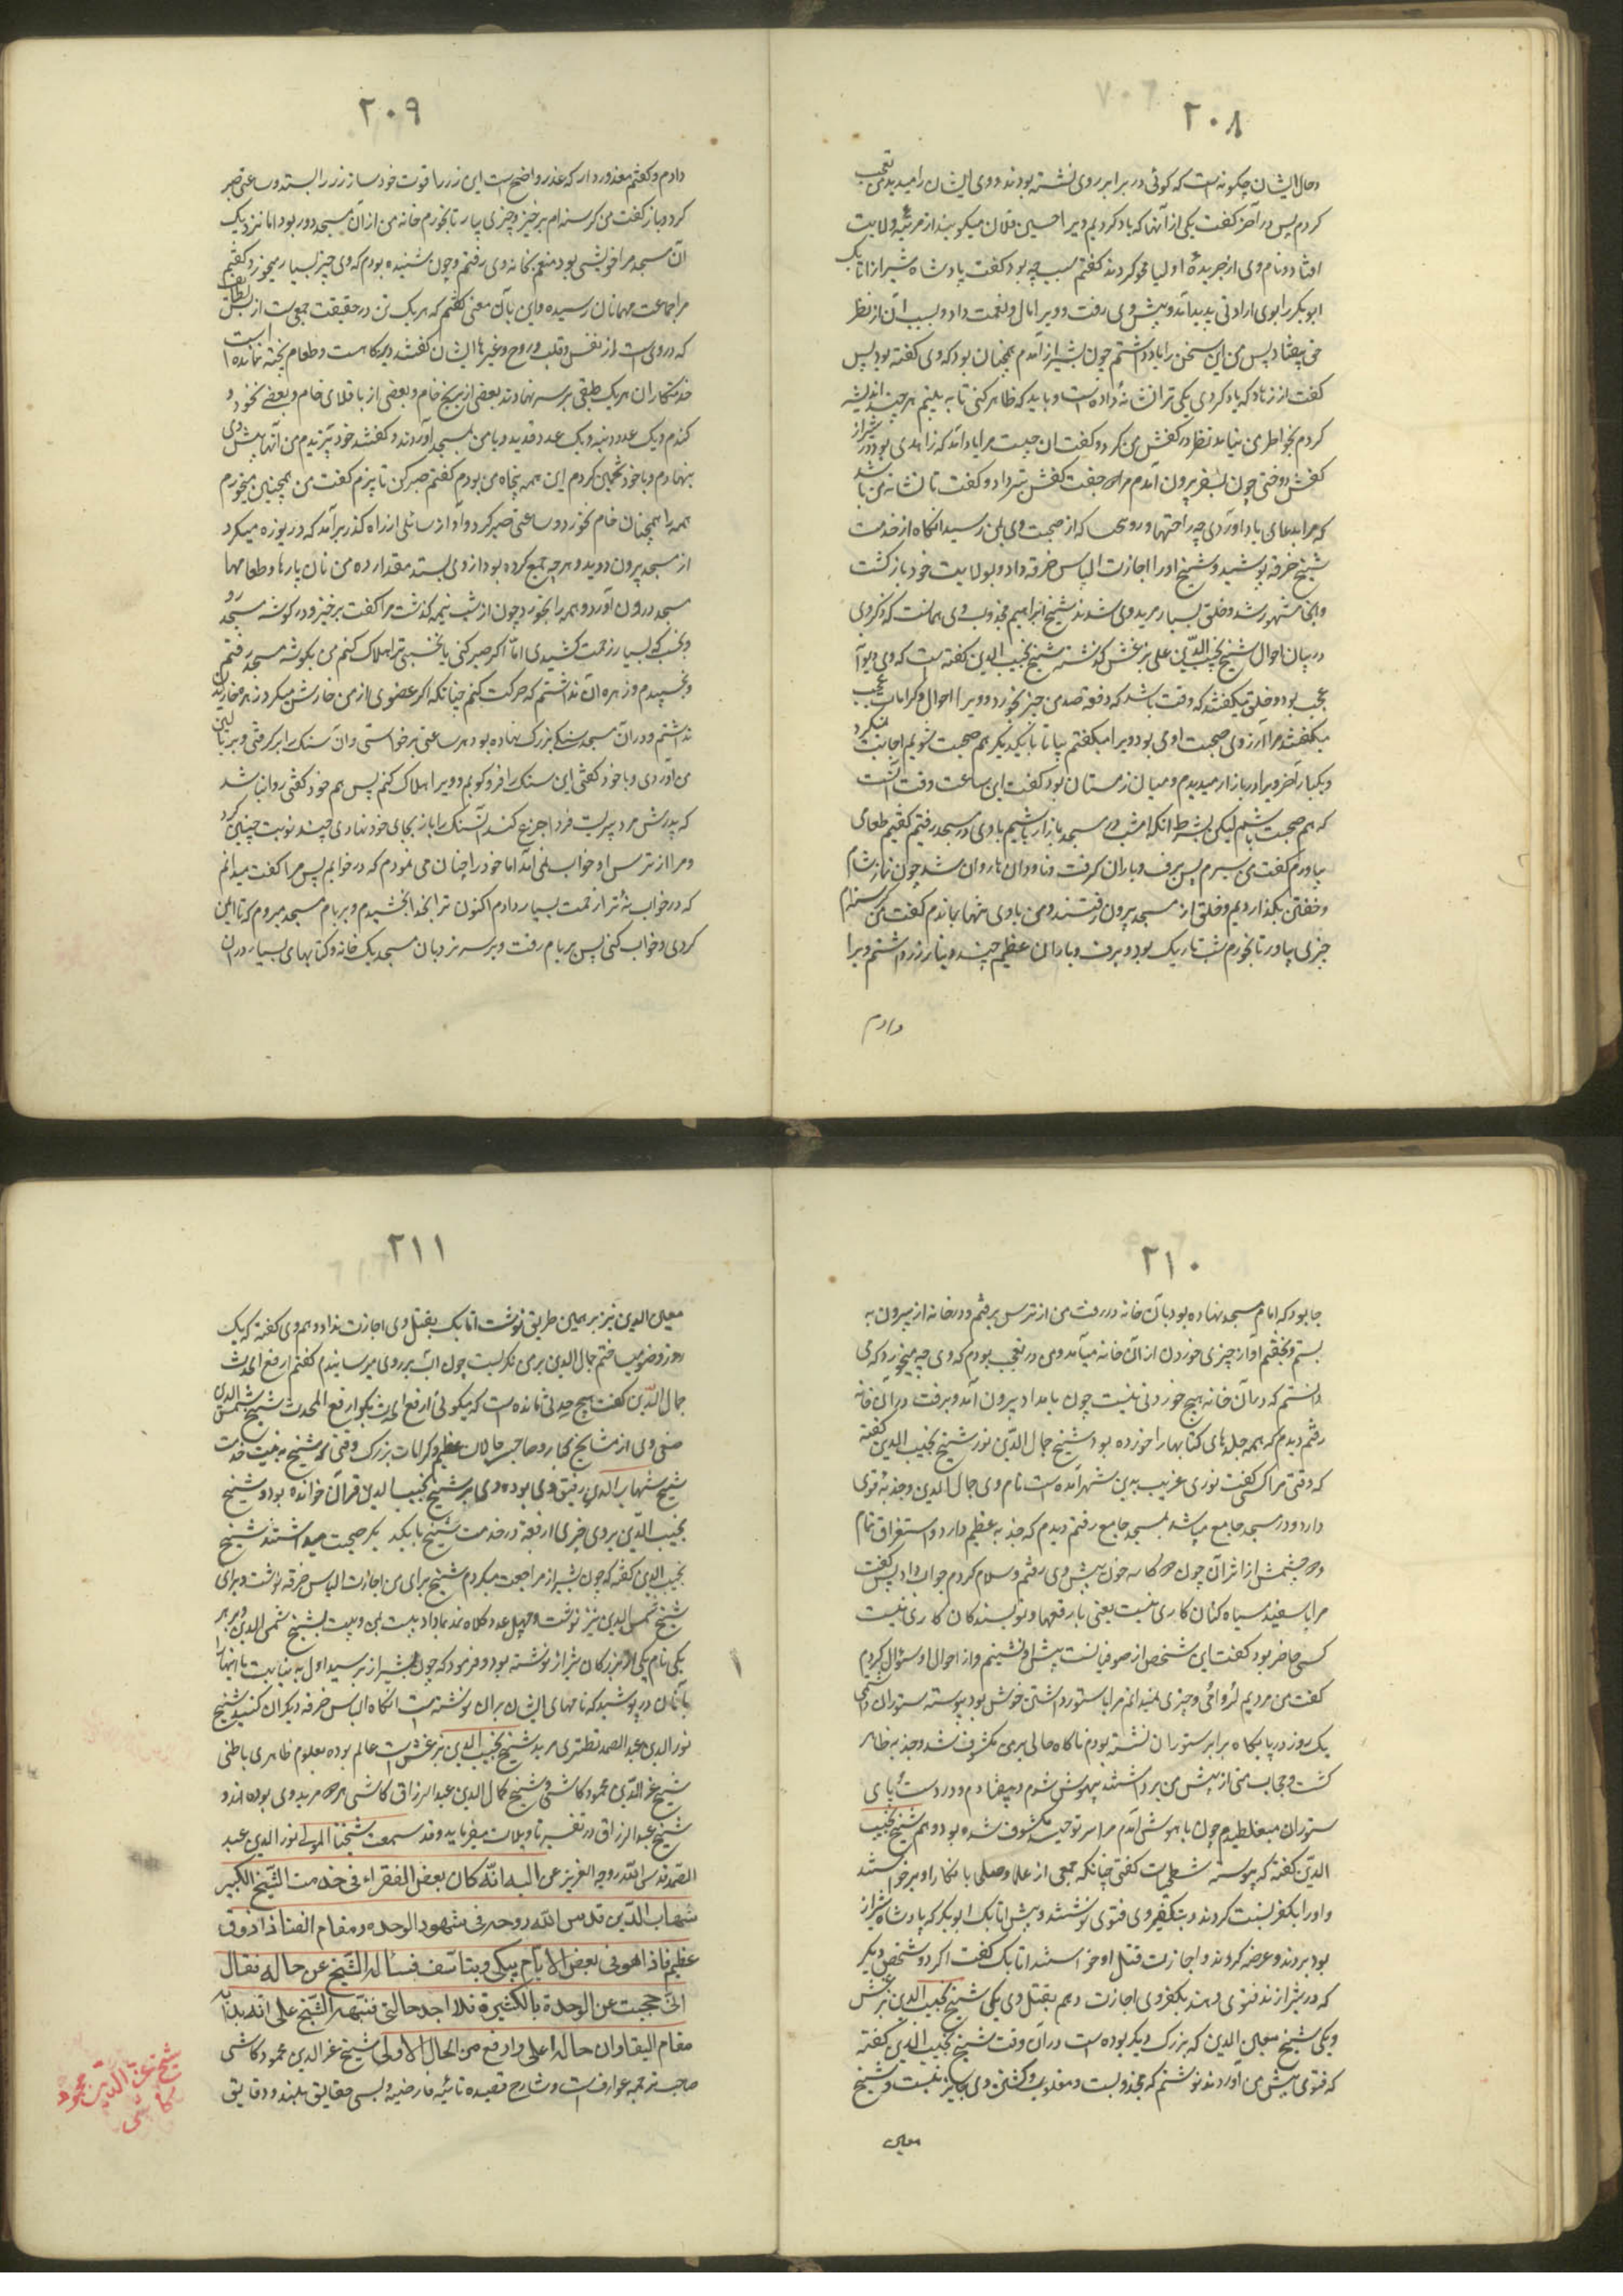 ٢٠٨
وحال ایشان چگونه است که گوئی در برابر روی نشسته بودند و وی ایشان را میدید من تعجب
کردم پس در آخر گفت یکی از آنها که یاد کردیم ویرا حسین فلان میگویند از مرتبهٔ ولایت
افتاد و نام وی از جریدهٔ اولیا محو کردند گفتم سبب چه بود گفت پادشاه شیراز اتابک
ابوبکر را بوی ارادتی پدید آمد و پیش وی رفت و ویرا مال و نعمت داد و بسبب آن از نظر
حق بیفتاد پس من این سخن را یاد داشتم چون بشیراز آمدم همچنان بود که وی گفته بود پس
گفت از زهاد که یاد کردی یکی ترا نشانهٔ داده است و باید که ظاهر کنی تا به بینم هر چند اندیشه
کردم بخاطر من نیامد نظر در کفش من کرد و گفت این چیست مرا یاد آمد که زاهدی بود در شیراز
کفش دوختی چون بسفر بیرون آمدم مرا جفت کفش بتبرک داد و گفت تا نشانه من باشد
که مرا بدعای یاد آوردی چه راحتها و روحها که از صحبت وی بمن رسید آنگاه از خدمت
شیخ خرقه پوشید و شیخ او را اجازت الباس خرقه داد و بولایت خود بازگشت
و آنجا مشهور شد و خلق بسیار مرید وی شدند شیخ ابراهیم مجذوب وی همانست که ذکر وی
در بیان احوال شیخ نجیب الدین علی بزغش گذشته شیخ نجیب الدین گفته است که وی دیوانهٔ
عجب بود و خلق میگفتند که وقت باشد که دفعة صد من چیز بخورد و ویرا احوال و کرامات عجب
میگفتند مرا آرزوی صحبت او می بود ویرا میگفتم بیا تا با یکدیگر هم صحبت شویم اجابت نمیکرد
و یکبار آخر ویرا در بازار میدیدم و میان زمستان بود گفت این ساعت وقت آنست
که هم صحبت باشیم لیکن بشرط آنکه امشب در مسجد بازار باشیم با وی در مسجد رفتیم گفتیم طعامی
بیاورم گفت من سیرم پس برف و باران گرفت و ناودان ها روان شد چون نماز شام
و خفتن بگذاردیم و خلق از مسجد بیرون رفتند و من با وی تنها بماندم گفت من گرسنه‌ام
چیزی بیاور تا بخورم شب تاریک بود و برف و باران عظیم چند دینار زر داشتم ویرا
دادم
٢٠٩
دادم و گفتم معذور دار که عذر واضح است این زر را قوت خود ساز زر را بستد و ساعتی صبر
کرد و باز گفت من گرسنه‌ام برخیز و چیزی بیار تا بخورم خانه من از آن مسجد دور بود اما نزدیک
آن مسجد مرا خویشی بود منعم بخانه وی رفتم و چون شنیده بودم که وی چیز بسیار میخورد گفتم
مرا جماعت مهمانان رسیده و این بآن معنی گفتم که هر یک تن در حقیقت جمعی است از بس لطائف
که در وی است از نفس و قلب و روح و غیرها ایشان گفتند دیرگاه است و طعام پخته نمانده است
خدمتکاران هر یک طبقی بر سر نهادند بعضی از برنج خام و بعضی از باقلای خام و بعضی نخود و
گندم و یک عدد دنبه و یک عدد قدید و با من بمسجد آوردند و گفتند خود بپزید من آنها پیش وی
بنهادم و با خود تخمین کردم این همه پنجاه من بود گفتم صبر کن تا بپزم گفت من همچنین میخورم
همه را همچنان خام بخورد و ساعتی صبر کرد و آواز سائلی از راه گذر برآمد که دریوزه میکرد
از مسجد بیرون دوید و هر چه جمع کرده بود از وی بستد مقدار ده من نان پارها و طعامها
بمسجد درون آورد و همه را بخورد چون از شب نیمه گذشت مرا گفت برخیز و در گوشه مسجد رو
و بخسب که بسیار زحمت کشیدی اما اگر صبر کنی یا نخسبی ترا هلاک کنم من بگوشه مسجد رفتم
و بخسپیدم و زهره آن نداشتم که حرکت کنم چنانکه اگر عضوی از من خارش میکرد زهره خاریدن
نداشتم و در آن مسجد سنگی بزرگ نهاده بود هر ساعتی برخواستی و آن سنگ را برگرفتی و بر بالین
من آوردی و با خود گفتی این سنگ را فرو کوبم و ویرا هلاک کنم پس هم خود گفتی روا نباشد
که پدرش مرد پیر است فردا جزع کند آن سنگ را باز بجای خود نهادی چند نوبت چنین کرد
و مرا از ترس او خواب نمی آمد اما خود را چنان می نمودم که در خوابم پس مرا گفت میدانم
که در خواب نهٔ ترا زحمت بسیار دادم اکنون ترا بخدا بخشیدم و بر بام مسجد میروم که تا ایمن
گردی و خواب کنی پس بر بام رفت و بر سر نردبان مسجد یک خانه و کتابهای بسیار در آن
٢١٠
جا بود که امام مسجد نهاده بود بآن خانه در رفت من از ترس برفتم و در خانه از بیرون به
بستم و بخفتم آواز چیزی خوردن از آن خانه میآمد و من در تعجب بودم که وی چه میخورد که می
دانستم که در آن خانه هیچ خوردنی نیست چون بامداد بیرون آمد و برفت در آن خانه
رفتم دیدم که همه جلدهای کتابها را خورده بود شیخ جمال الدین نور شیخ نجیب الدین گفته
که وقتی مرا کسی گفت نوری غریب بدین شهر آمده است نام وی جمال الدین و جذبهٔ قوی
دارد و در مسجد جامع میباشد بمسجد جامع رفتم دیدم که جذبه عظیم دارد و استغراق تمام
و دو چشمش از اثر آن چون دو کاسه خون پیش وی رفتم و سلام کردم جواب داد پس گفت
مرا با سفید سیاه کنان کاری نیست یعنی با رقعها و نویسندگان کاری نیست
کسی حاضر بود گفت این شخص از صوفیانست پیش او نشینم و از احوال او سئوال کردم
گفت من مردیم لر و امّی و چیزی نمیدانم مرا با ستور داشتن خوش بود پیوسته ستوران داشتمی
یک روز در پایگاه برابر ستوران نشسته بودم ناگاه حالی بر من مکشوف شد و جذبه ظاهر
گشت و حجاب من از پیش من برداشتند بیهوش شدم و بیفتادم و در دست و پای
ستوران میغلطیدم چون با هوش آمدم مرا سر توحید مکشوف شده بود و هم شیخ نجیب
الدین گفته که پیوسته شطحیات گفتی چنانکه جمعی از علما و صلحا با انکار او برخواستند
و او را بکفر نسبت کردند و بتکفیر وی فتوی نوشتند و پیش اتابک ابوبکر که پادشاه شیراز
بود بردند و عرضه کردند و اجازت قتل او خواستند اتابک گفت اگر دو شخص دیگر
که در شیرازند فتوی دهند بکفر وی اجازت دهم بقتل وی یکی شیخ نجیب الدین بزغش
و یکی شیخ معین الدین که بزرگ دیگر بوده است در آن وقت شیخ نجیب الدین گفته
که فتوی پیش من آوردند نوشتم که مجذوبست و مغلوب و کشتن وی جایز نیست و شیخ
معین
٢١١
معین الدین نیز بر همین طریق نوشت اتابک بقتل وی اجازت نداد و هم وی گفته که یک
روز وضو میساختم جمال الدین بر من نگریست چون آب بر روی میرسانیدم گفتم ارفع الحدث
جمال الدین گفت هیچ حدثی نمانده است که میگوئی ارفع الحدث بگو ارفع المحدث شیخ شمس الدین
صفی وی از مشایخ کبار و صاحب حالات عظیم و کرامات بزرگ وقتی که شیخ به نیت خدمت
شیخ شهاب الدین رفیق وی بوده و وی بر شیخ نجیب الدین قرآن خوانده بود و شیخ
نجیب الدین بر وی چیزی از فقه در خدمت شیخ با یکدیگر صحبت میداشتند شیخ
نجیب الدین گفته که چون بشیراز مراجعت میکردم شیخ برای من اجازت الباس خرقه نوشت و برای
شیخ شمس الدین نیز نوشت و چهل عدد کلاه نمد بما داد بیست بمن و بیست بشیخ شمس الدین و بر هر
یکی نام یکی از بزرگان شیراز نوشته بود و فرمود که چون بشیراز برسید اول به نیابت ما اینها را
بآنان درپوشید که نامهای ایشان بر آن نوشته است آنگاه الباس خرقه دیگران کنید شیخ
نور الدین عبد الصمد نطنزی مرید شیخ نجیب الدین بزغش است عالم بوده بعلوم ظاهری باطنی
شیخ عز الدین محمود کاشی و شیخ کمال الدین عبد الرزاق کاشی هر دو مرید وی بوده‌اند و
شیخ عبد الرزاق در تفسیر تاویلات میفرماید و قد سمعت شیخنا المولی نور الدین عبد
الصمد قدس الله روحه العزیز عن ابیه انّه کان بعض الفقراء فی خدمت الشیخ الکبیر
شهاب الدین قدس الله روحه فی شهود الوحده و مقام الفنا ذا ذوق
عظیم فاذا هو فی بعض الایام یبکی و یتأسف فساله الشیخ عن حاله فقال
انّی حجبت عن الوحدة بالکثرة فلا اجد حالتی فنبهه الشیخ علی انّه بدایه
مقام البقا و ان حاله اعلی و ارفع من الحال الاولی شیخ عز الدین محمود کاشی
صاحب ترجمه عوارف است و شارح قصیده تائیه فارضیه و بسی حقایق بلند و دقایق
شیخ عز الدین محمود
کاشی